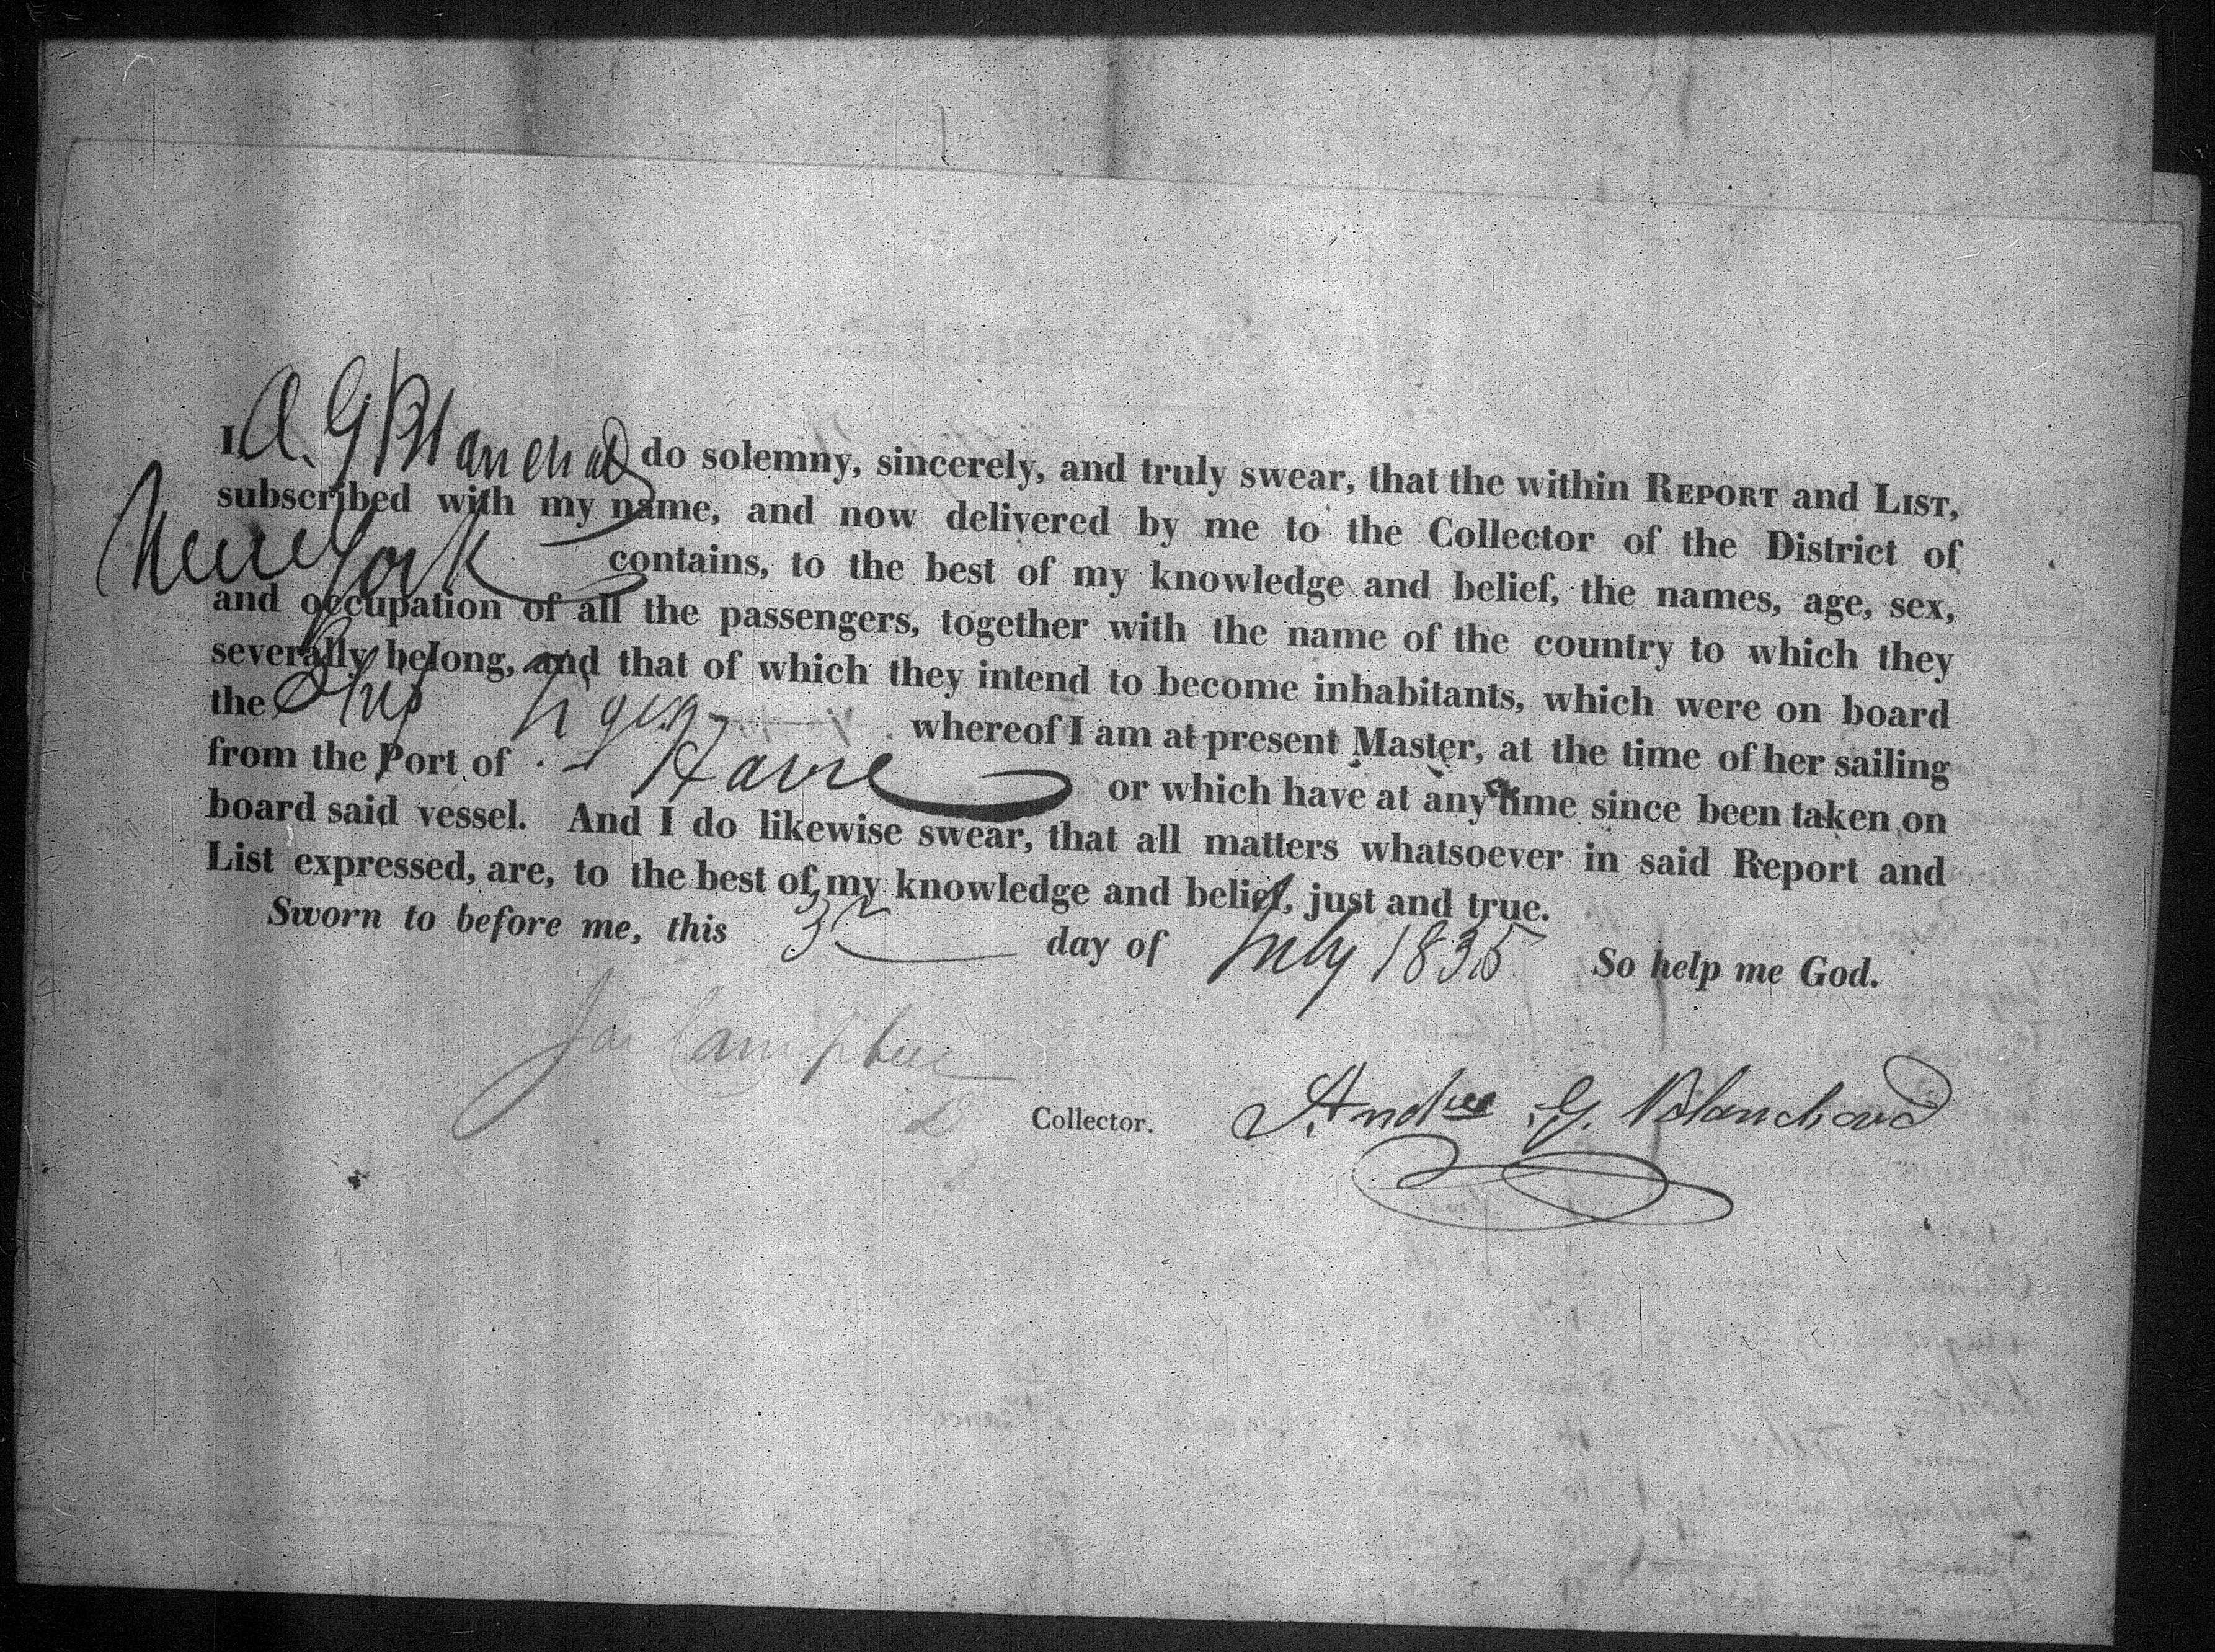 I, A. G Blanchard do solemny, sincerely, and truly swear, that the within REPORT and LIST,
subscribed with my name, and now delivered by me to the Collector of the District of
New York contains, to the best of my knowledge and belief, the names, age, sex,
and occupation of all the passengers, together with the name of the country to which they
severally belong, and that of which they intend to become inhabitants, which were on board
the Ship whereof I am at present Master, at the time of her sailing
from the Port of Havre or which have at any time since been taken on
board said vessel. And I do likewise swear, that all matters whatsoever in said Report and
List expressed, are, to the best of my knowledge and belief, just and true.
Sworn to before me, this 3 day of July 1835 So help me God.
Jas Campbell
D Collector. Andrew G. Blanchard